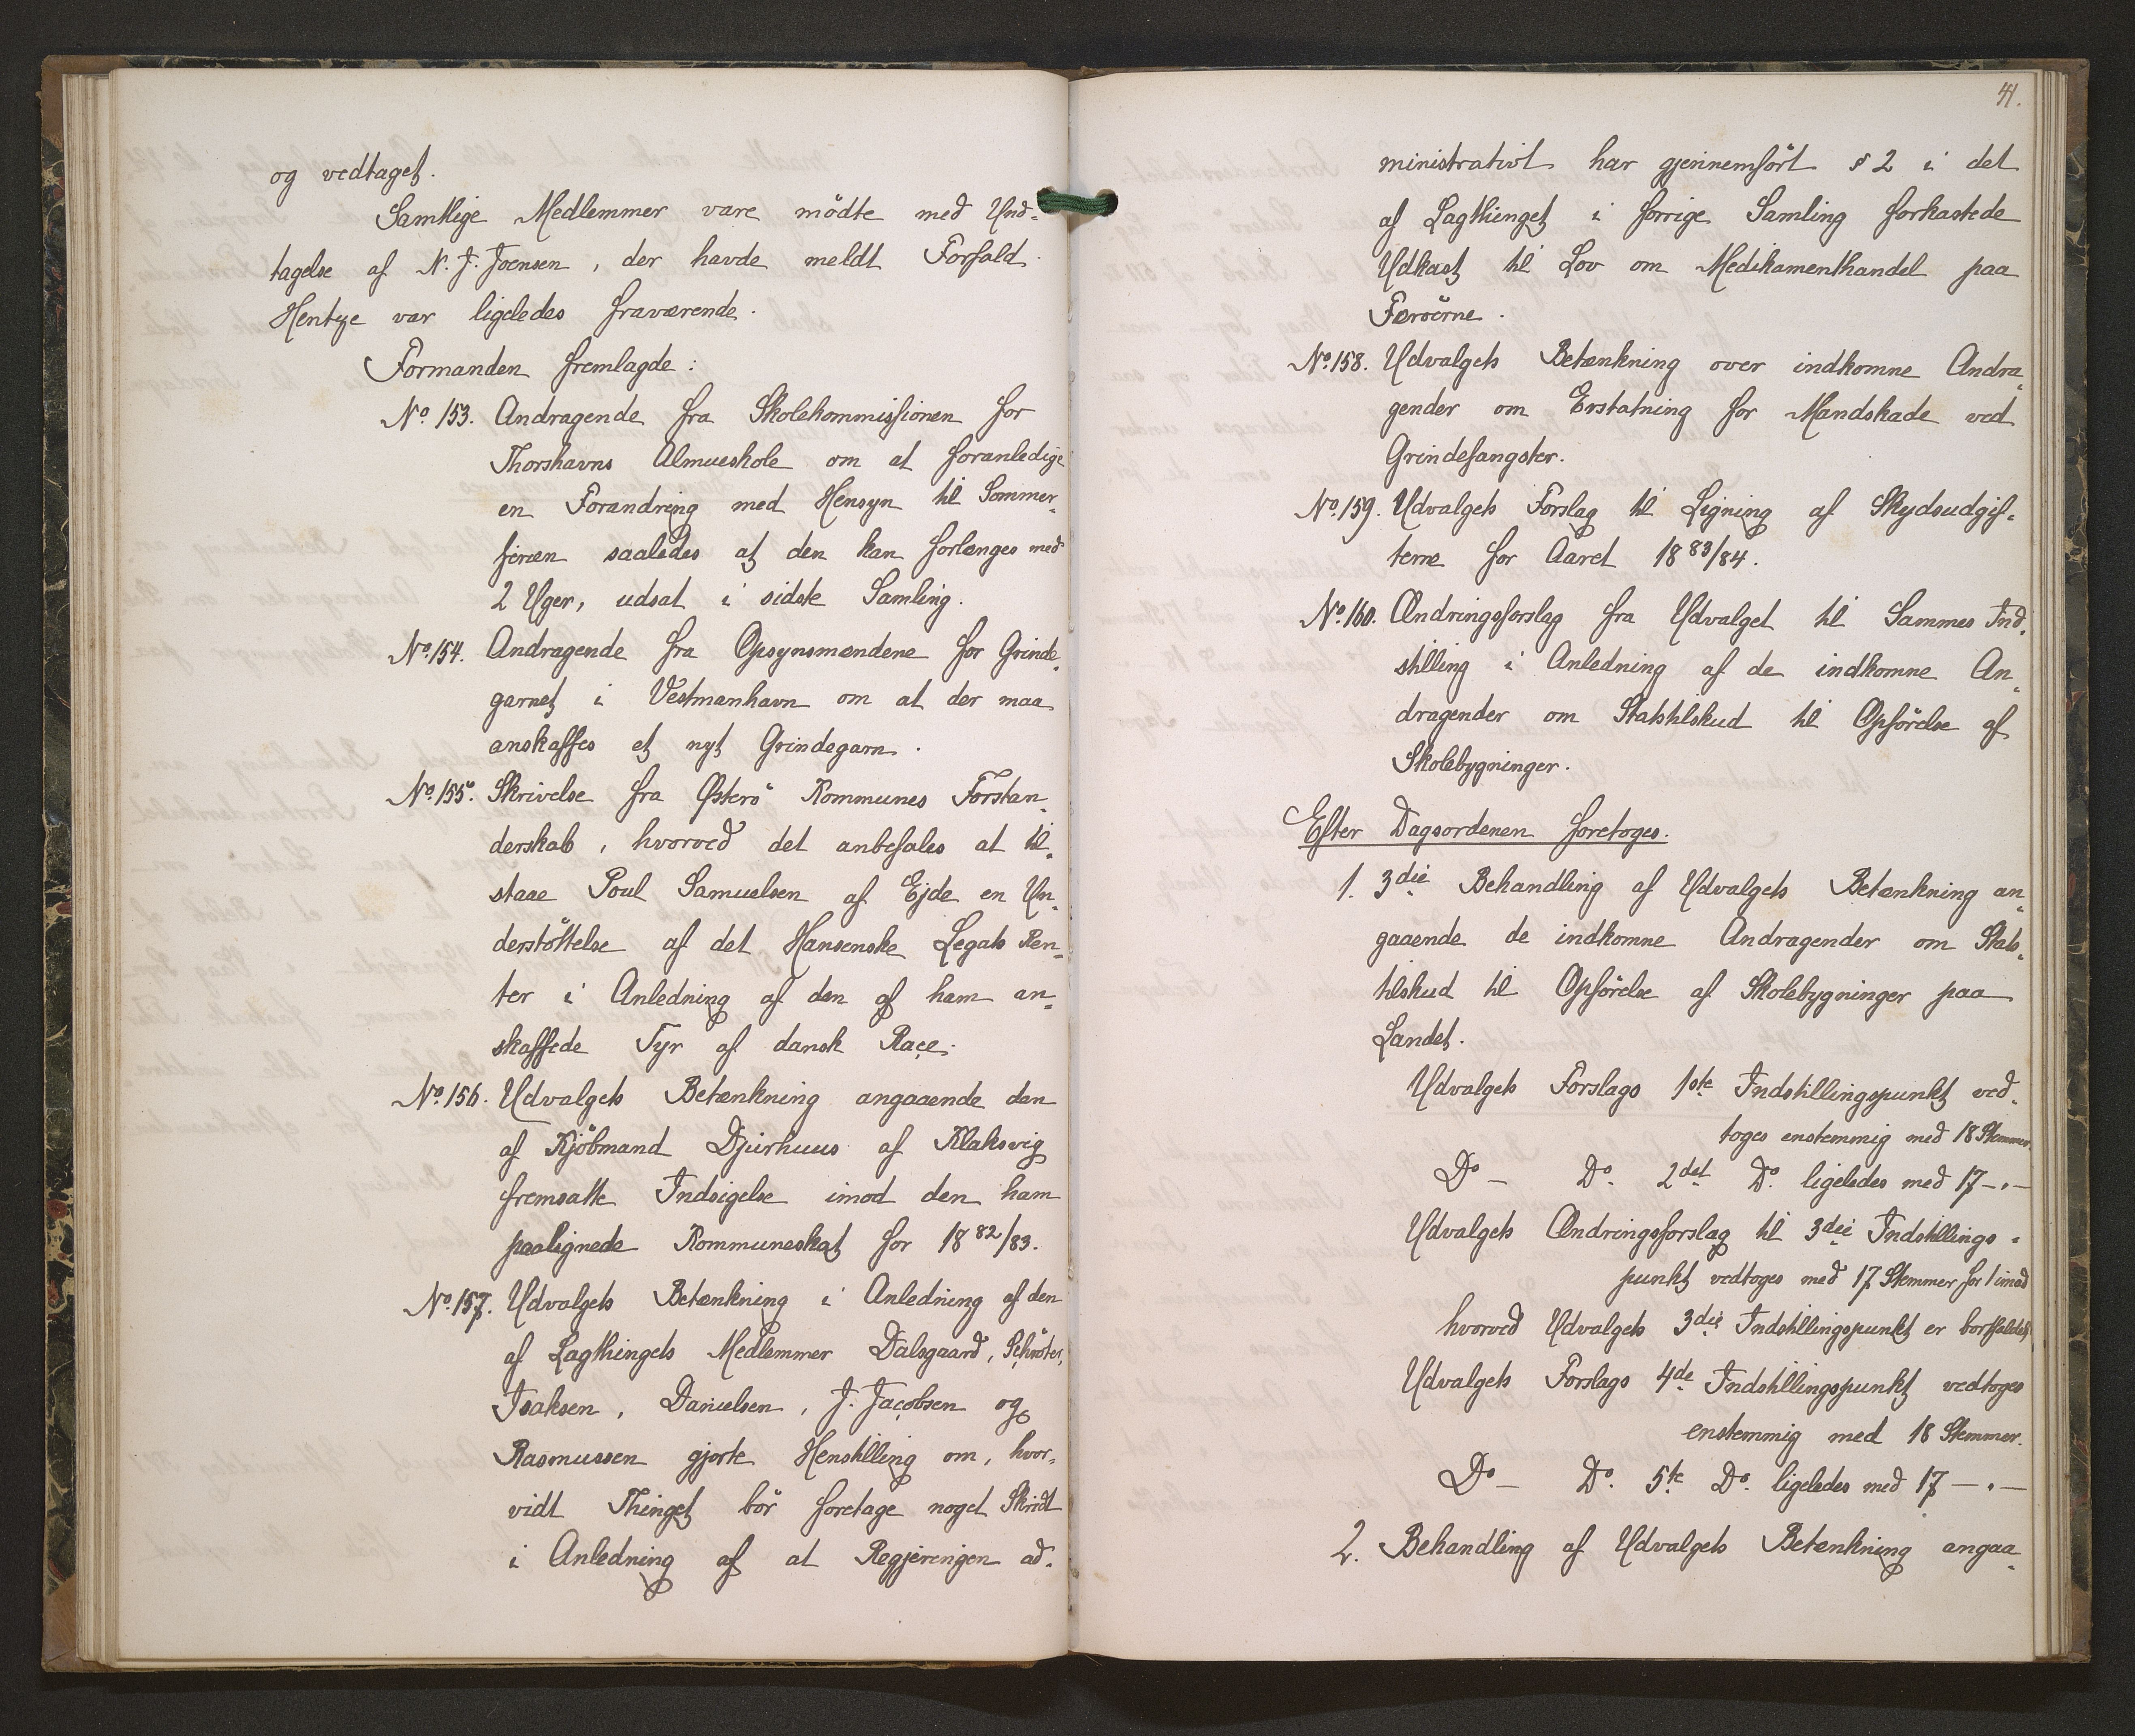 og vedtaget.
Samtlige Medlemmer vare mödte med Und-
tagelse af N. J. Joensen, der havde meldt Forfald.
Hentze var ligeledes fraværende.
Formanden fremlagde:
No. 153. Andragende fra Skolekommissionen for
Thorshavns Almueskole om at foranledige
en Forandring med Hensyn til Sommer-
ferien saaledes at den kan forlænges med
2 Uger, udsat i sidste Samling.
No. 154. Andragende fra Opsynsmændene for Grinde-
garnet i Vestmanhavn om at der maa
anskaffes et nyt Grindegarn.
No. 155. Skrivelse fra Østerö Kommunes Forstan-
derskab, hvorved det anbefales at til-
staae Poul Samuelsen af Ejde en Un-
derstöttelse af det Hansenske Legats Ren-
ter i Anledning af den af ham an-
skaffede Tyr af dansk Race.
No. 156. Udvalgets Betænkning angaaende den
af Kjöbmand Djurhuus af Klaksvig
fremsatte Indsigelse imod den ham
paalignede Kommuneskat for 1882/83.
No. 157. Udvalgets Betænkning i Anledning af den
af Lagthingets Medlemmer Dalsgaard, Schröter,
Isaksen, Danielsen, J. Jacobsen og
Rasmussen gjorte Henstilling om, hvor-
vidt Thinget bör foretage noget Skridt
i Anledning af at Regjeringen ad-
41.
ministrativt har gjennemfört § 2 i det
af Lagthinget i forrige Samling forkastede
Udkast til Lov om Medikamenthandel paa
Færöerne.
No. 158. Udvalgets Betænkning over indkomne Andra-
gender om Erstatning for Mandskade ved
Grindefangster.
No. 159. Udvalgets Forslag til Ligning af Skydsudgif-
terne for Aaret 1883/84.
No. 160. Ændringsforslag fra Udvalget til Sammes Ind-
stilling i Anledning af de indkomne An-
dragender om Statstilskud til Opförelse af
Skolebygninger.
Efter Dagsordenen foretoges.
1. 3die Behandling af Udvalgets Betænkning an-
gaaende de indkomne Andragender om Stats-
tilskud til Opförelse af Skolebygninger paa
Landet.
Udvalgets Forslags 1ste Indstillingspunkt ved-
toges enstemmig med 18 Stemmer.
Do - Do. 2det Do. ligeledes med 17 -"-
Udvalgets Ændringsforslag til 3die Indstillings-
punkt vedtoges med 17 Stemmer for 1 imod
hvorved Udvalgets 3die Indstillingspunkt er bortfaldet,
Udvalgets Forslags 4de Indstillingspunkt vedtoges
enstemmig med 18 Stemmer.
Do - Do. 5te Do. ligeledes med 17 -"-
2. Behandling af Udvalgets Betænkning angaa-